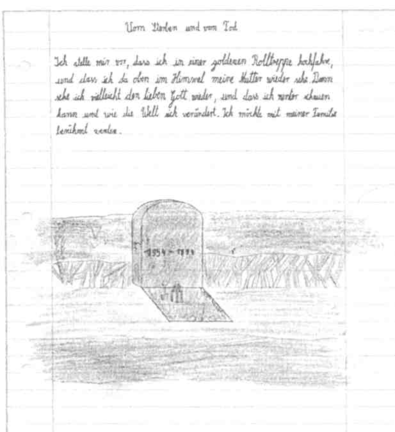 Vom Sterben und vom Tod
Ich stelle mir vor, dass ich in einer goldenen Rolltreppe hochfahre,
und dass ich da oben im Himmel meine Mutter wieder sehe. Dann
sehe ich vielleicht den lieben Gott wieder, und dass ich runter schauen
kann und wie die Welt sich verändert. Ich möchte mit meiner Familie
berühmt werden.